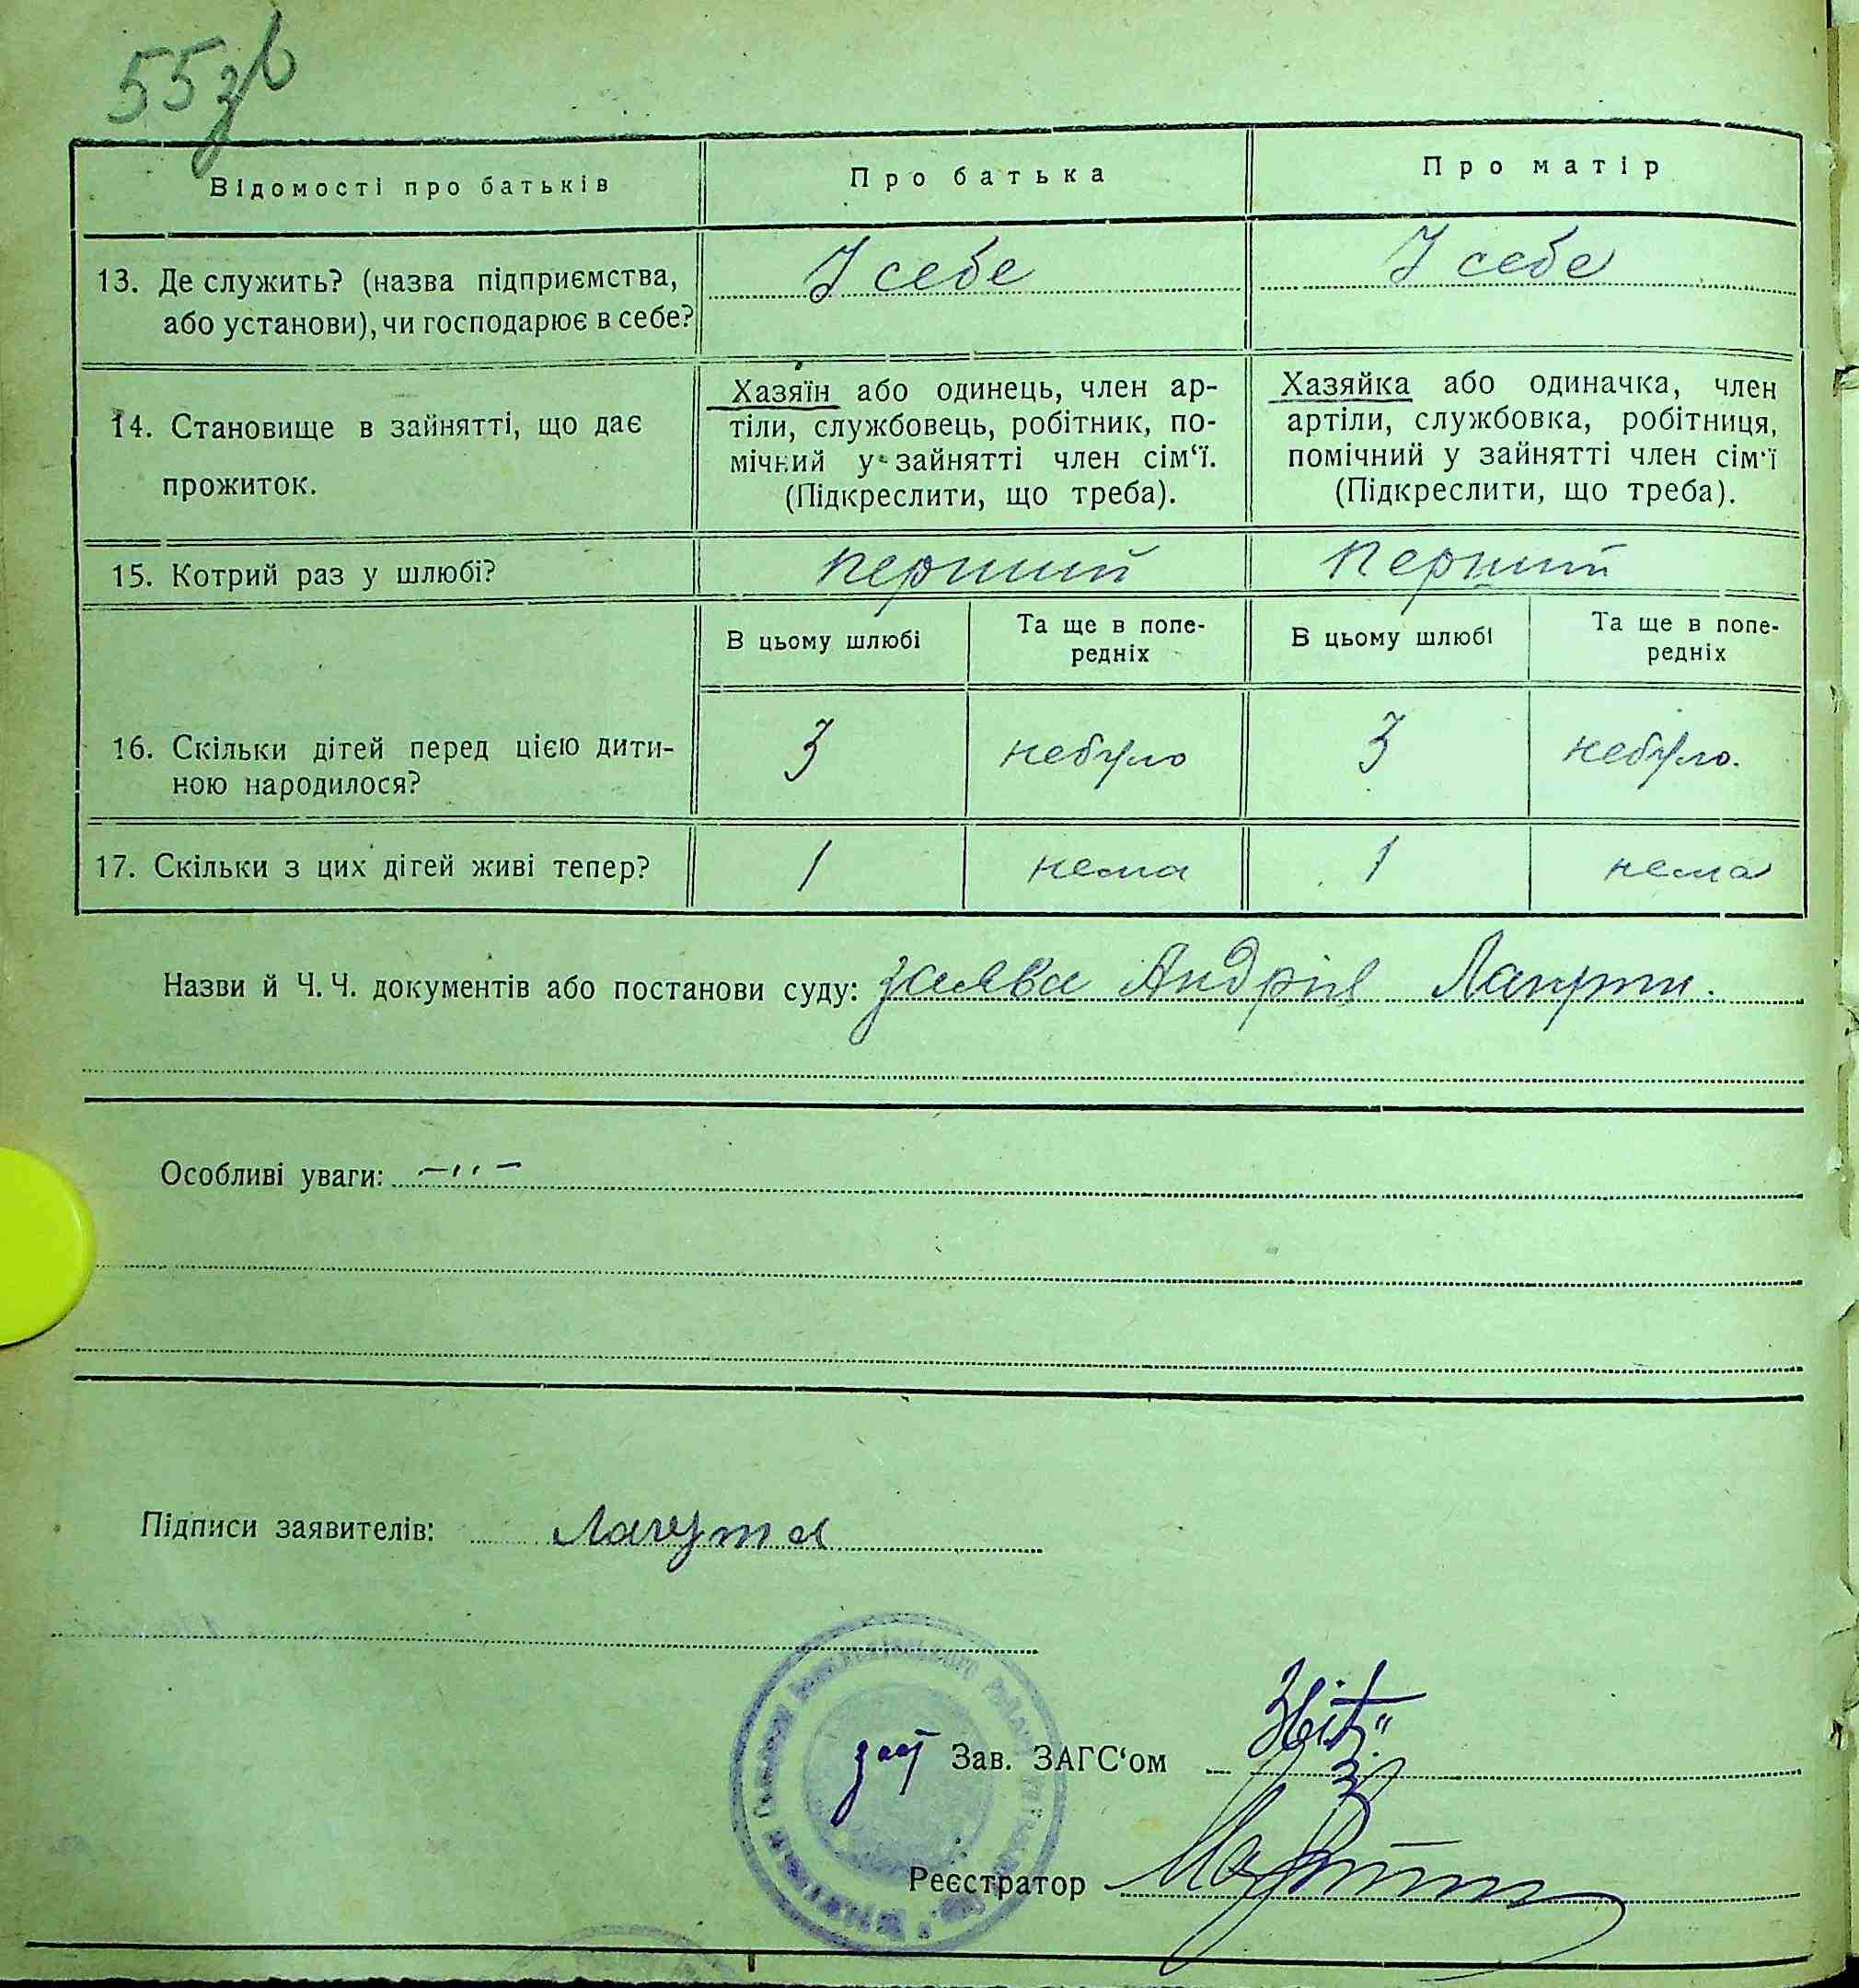 55зв
Відомості про батьків
Про батька
Про матір
13. Де служить? (назва підприємства,
або установи), чи господарює в себе?
У себе
У себе
14. Становище в зайнятті, що дає
прожиток.
Хазяїн або одинець, член ар-
тіли, службовець, робітник, по-
мічний у зайнятті член сім‘ї.
(Підкреслити, що треба).
Хазяйка або одиначка, член
артіли, службовка, робітниця,
помічний у зайнятті член сім‘ї
(Підкреслити, що треба).
15. Котрий раз у шлюбі?
перший
перший
В цьому шлюбі
Та ще в попе-
редніх
В цьому шлюбі
Та ще в попе-
редніх
16. Скільки дітей перед цією дити-
ною народилося?
3
небуло
3
небуло.
17. Скільки з цих дітей живі тепер?
1
нема
1
нема
Назви й Ч. Ч. документів або постанови суду: заява Андрія
Особливі уваги: –〃–
Підписи заявителів:
заст Зав. ЗАГС‘ом
Реєстратор